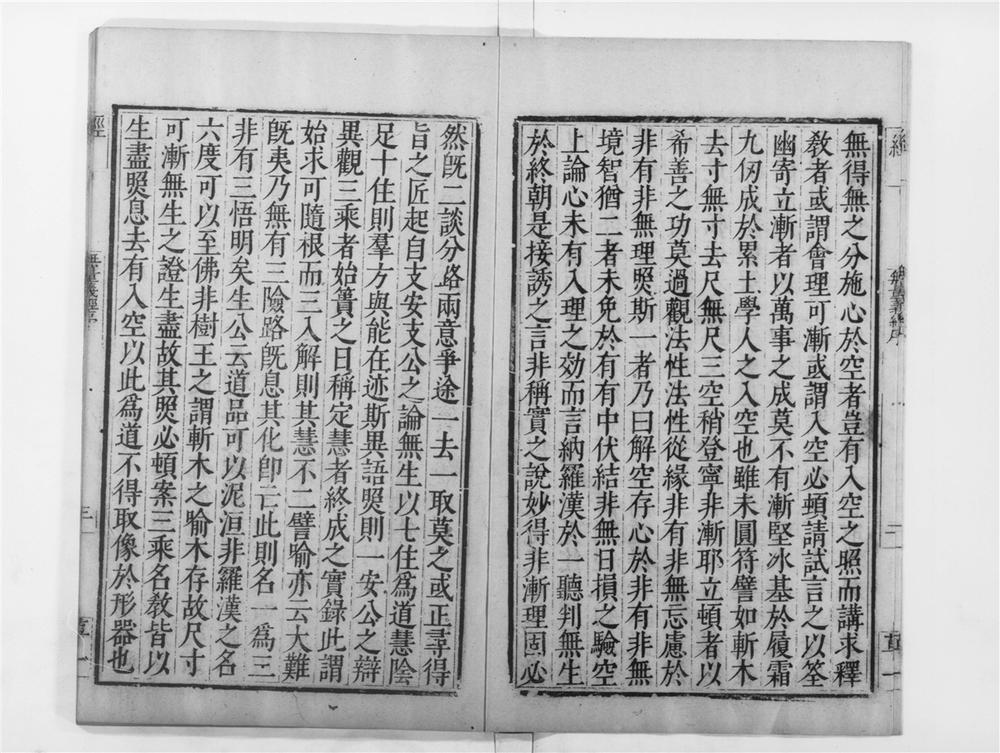 無得無之分施心於空者豈有入空之照而講求釋
教者或謂會理可漸或謂入空必頓請試言之以筌
幽寄立漸者以萬事之成莫不有漸堅冰基於履霜
九仞成於累土學人之入空也雖未圓符譬如斬木
去寸無寸去尺無尺三空稍登寧非漸耶立頓者以
希善之功莫過觀法性法性從緣非有非無忘慮於
非有非無理照斯一者乃曰解空存心於非有非無
境智猶二者未免於有有中伏結非無日損之驗空
上論心未有入理之効而言納羅漢於一聽判無生
於終朝是接誘之言非稱實之說妙得非漸理固必
然旣二談分路兩意爭途一去一取莫之或正尋得
旨之匠起自支安支公之論無生以七住爲道慧陰
足十住則羣方與能在迹斯異語照則一安公之辯
異觀三乘者始簣之日稱定慧者終成之實錄此謂
始求可隨根而三入解則其慧不二譬喻亦云大難
旣夷乃無有三險路旣息其化卽亡此則名一爲三
非有三悟明矣生公云道品可以泥洹非羅漢之名
六度可以至佛非樹王之謂斬木之喻木存故尺寸
可漸無生之證生盡故其照必頓案三乘名敎皆以
生盡照息去有入空以此爲道不得取像於形器也
經
經
三
二